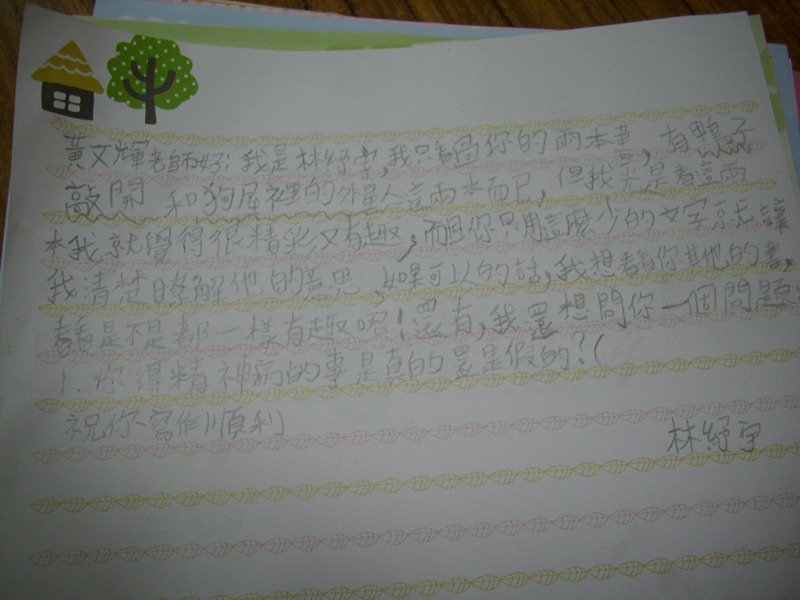 黃文輝老師好:我是林紓宇,我只看過你的兩本書,有鴨子
敲開 和狗屋裡的外星人這兩本而已,但我光是看這兩
本我就覺得很精彩又有趣,而且你只用這麼少的文字就讓
我清楚瞭解他的意思,如果可以的話,我想看看你其他的書,
看看是不是都一樣有趣喔!還有,我還想問你一個問題:
1.你得精神病的事是真的還是假的?(
祝你~寫作順利
林紓宇